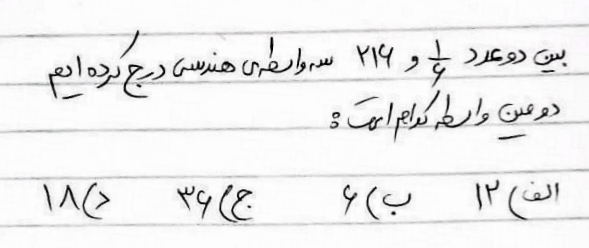 بین دو عدد ۱/۶ و ۲۱۶ سه واسطه‌ی هندسی درج کرده ایم
دومین واسطه کدام است:
الف) ۱۲ ب) ۶ ج) ۳۶ د) ۱۸